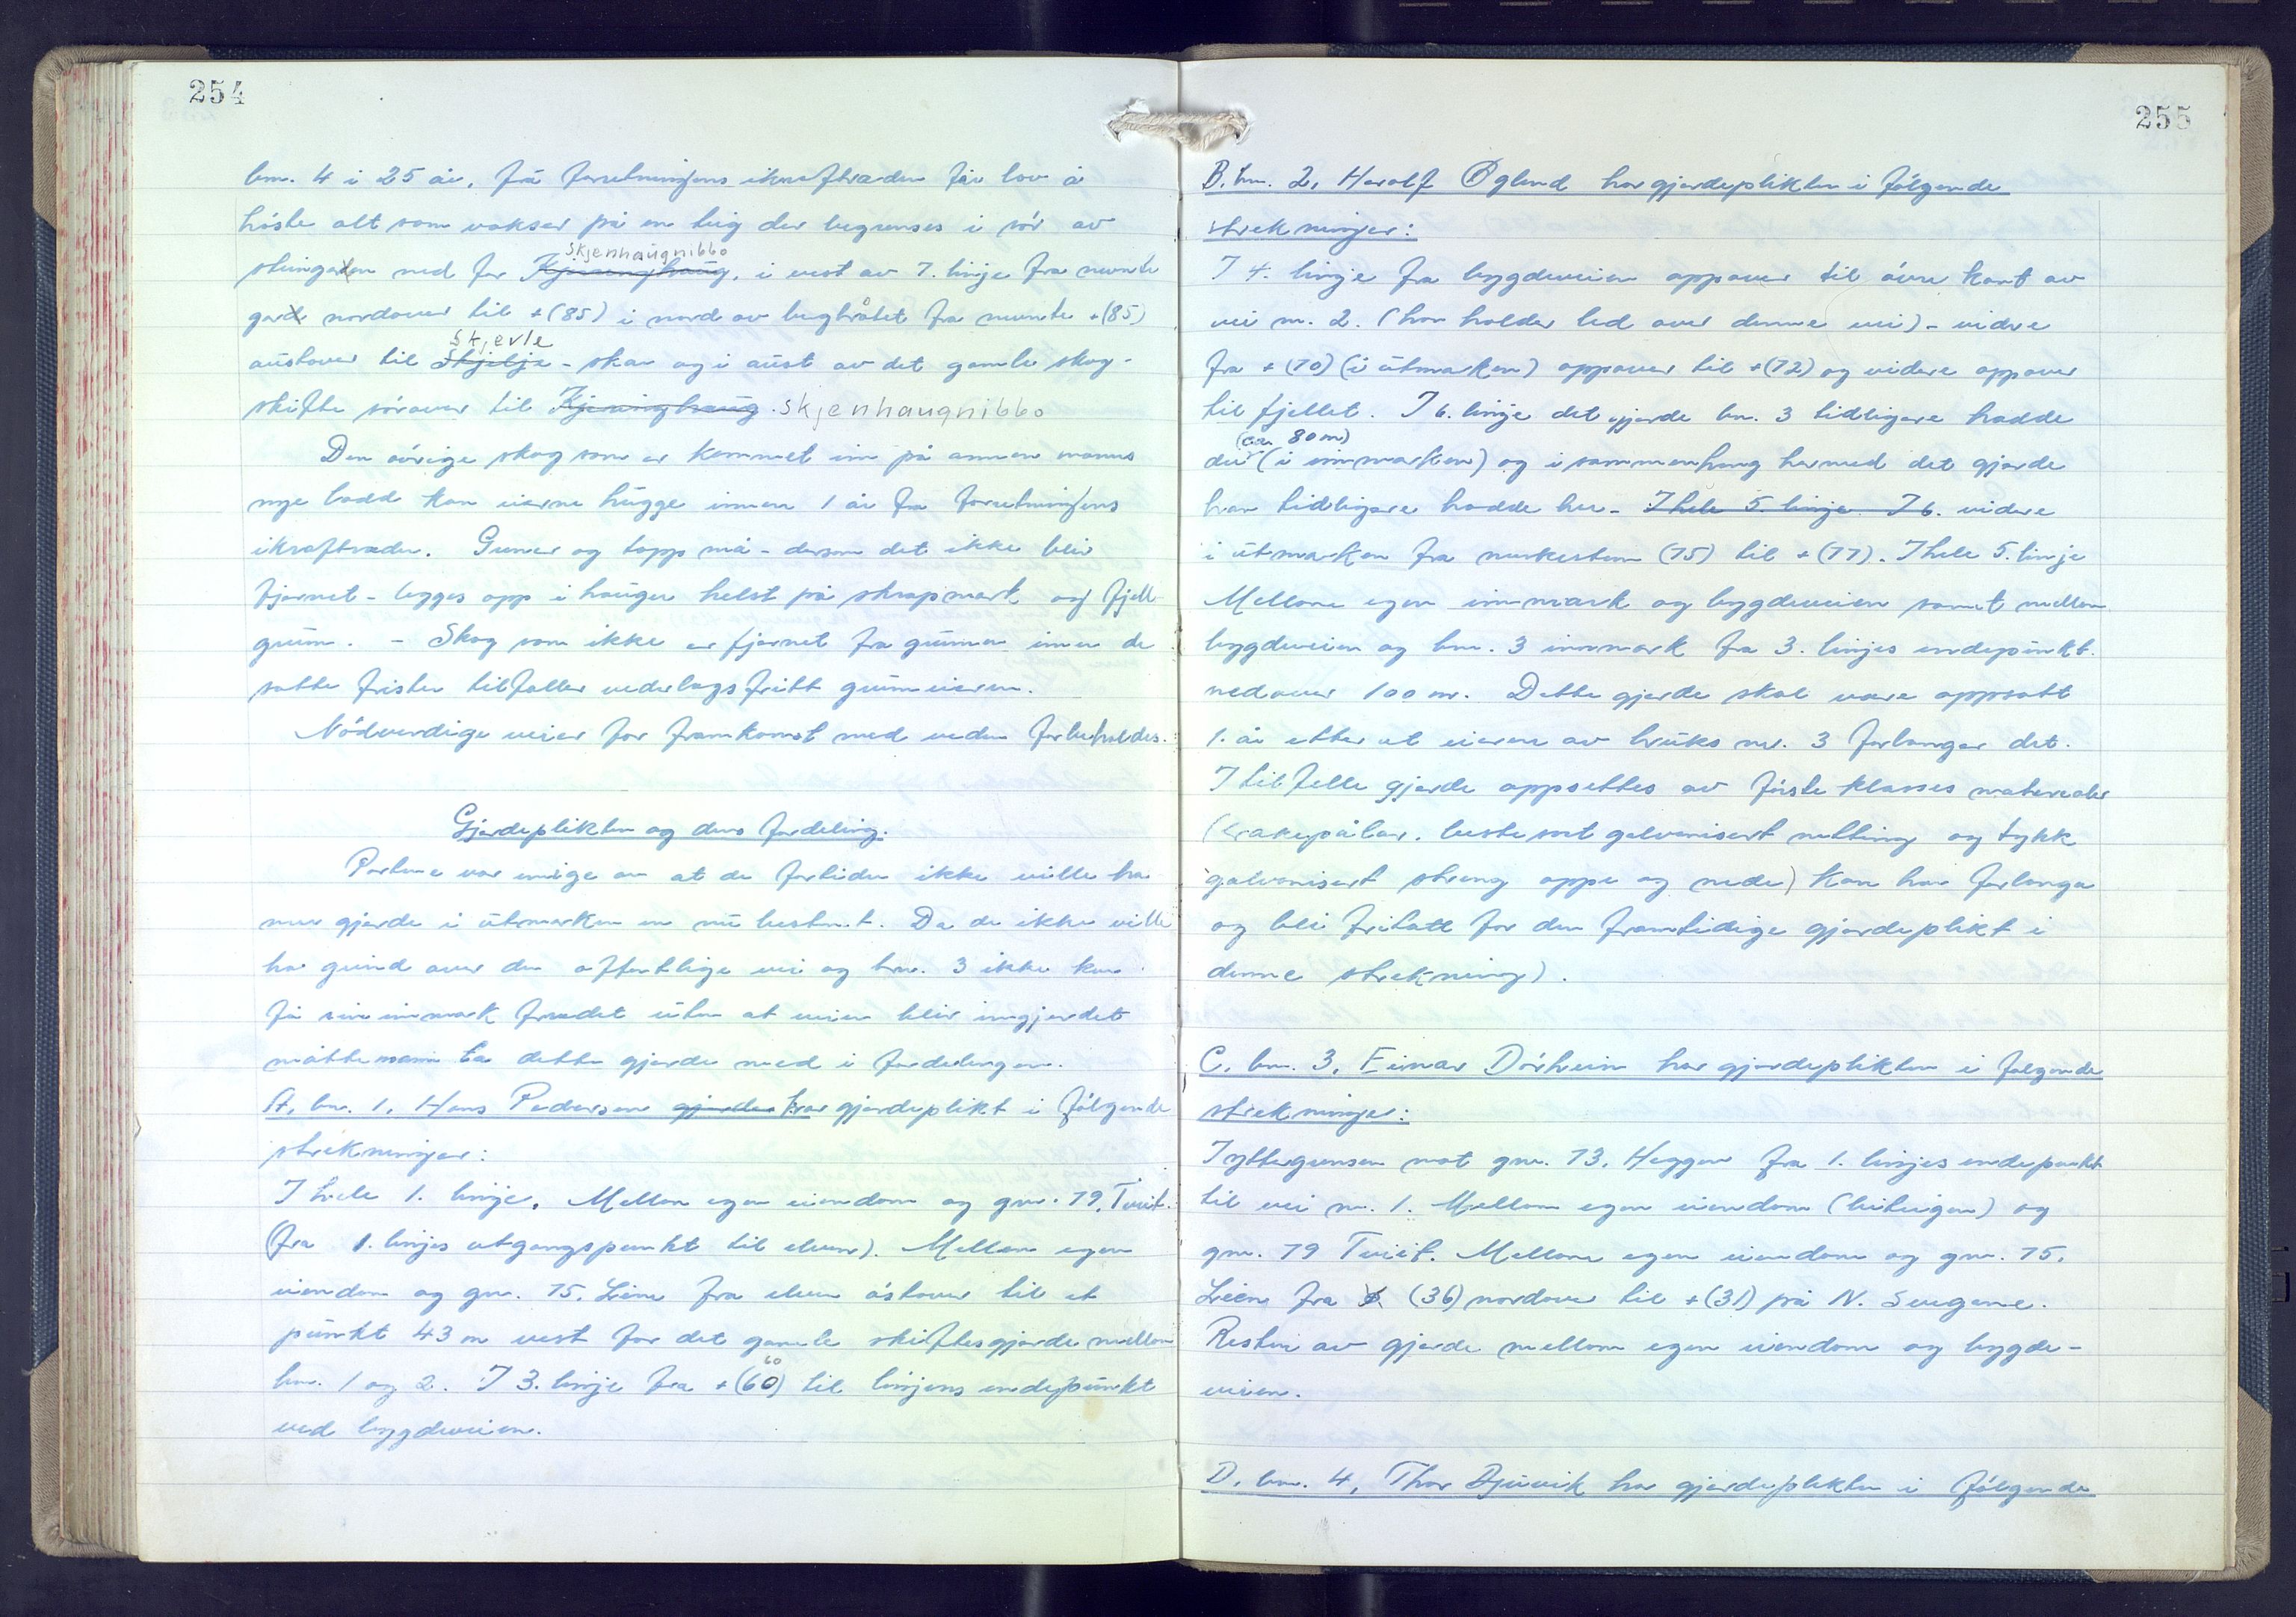 254
bnr. 4 i 25 år, frå forretningens ikrafttreden får lov å
høste alt som vokser på en teig der begrenses i sør av
steingarden ned for Kjenninghaug Skjenhaugnibbo, i vest av 7. linje fra nevnte
gard nordover til +(85) i nord av bergbrotet fra nevnte +(85)
austover til Skjelje Skjevle - skar og i aust av det gamle skog-
skifte sørover til Kjenninghaug. Skjenhaugnibbo
Den øvrige skog som er kommet inn på annen manns
nye lodd kan eierne hugge innen 1 år fra forretningens
ikrafttreden. Greiner og topp må - dersom det ikke blir
fjernet - legges opp i hauger helst på skrapmark og fjell
grunn. - Skog som ikke er fjernet fra grunnen innen de
satte frister tilfaller vederlagsfritt grunneieren.
Nødvendige veier for framkomst med veden forbeholdes.
Gjerdeplikten og dens fordeling.
Partene var enige om at de fortiden ikke ville ha
mer gjerde i utmarken en nu bestemt. Da de ikke ville
ha grind over den offentlige vei og bnr. 3 ikke kan
få sin innmark fredet uten at veien blir inngjerdet
måtte man ta dette gjerde med i fordelingen.
A. bnr. 1. Hans Pedersen gjerder har gjerdeplikt i følgende
strekninger:
I hele 1. linje. Mellom egen eiendom og gnr. 79, Tveit.
(fra 1. linjes utgangspunkt til elven). Mellom egen
eiendom og gnr. 75. Liene fra elven østover til et
punkt 43 m vest for det gamle skiftesgjerde mellom
bnr. 1 og 2. I 3. linje fra +(60) 60 til linjens endepunkt
ved bygdeveien.
255
B. bnr. 2, Harolf Øglend har gjerdeplikten i følgende
strekninger:
I 4. linje fra bygdeveien oppover til øvre kant av
vei nr. 2. (han holder led over denne vei) - vidre
fra +(70) (i utmarken) oppover til +(72) og videre oppover
til fjellet. I 6. linje det gjerde bnr. 3 tidligere hadde
(ca. 80 m)
der (i innmarken) og i sammenheng hermed det gjerde
han tidligere hadde her. I hele 5. linje. I 6. videre
i utmarken fra merkesten (75) til +(77). I hele 5. linje
Mellom egen innmark og bygdeveien samt mellom
bygdeveien og bnr. 3 innmark fra 3. linjes endepunkt
nedover 100 m. Dette gjerde skal være oppsatt
1. år etter at eieren av bruks nr. 3 forlanger det.
I tilfelle gjerde oppsettes av første klasses materealer
(rakepålar, beste sort galvanisert netting og tykk
galvanisert streng oppe og nede) kan han forlange
og bli fritatt for den framtidige gjerdeplikt i
denne strekning).
C. bnr. 3, Einar Dørheim har gjerdeplikten i følgende
strekninger:
I yttergrensen mot gnr. 73, Heggen fra 1. linjes endepunkt
til vei nr. 1. Mellom egen eiendom (liteigen) og
gnr. 79 Tveit. Mellom egen eiendom og gnr. 75.
Lien fra (36) nordover til +(31) på N. Svegene.
Resten av gjerde mellom egen eiendom og bygde-
veien.
D. bnr. 4, Thor Djuvik har gjerdeplikten i følgende